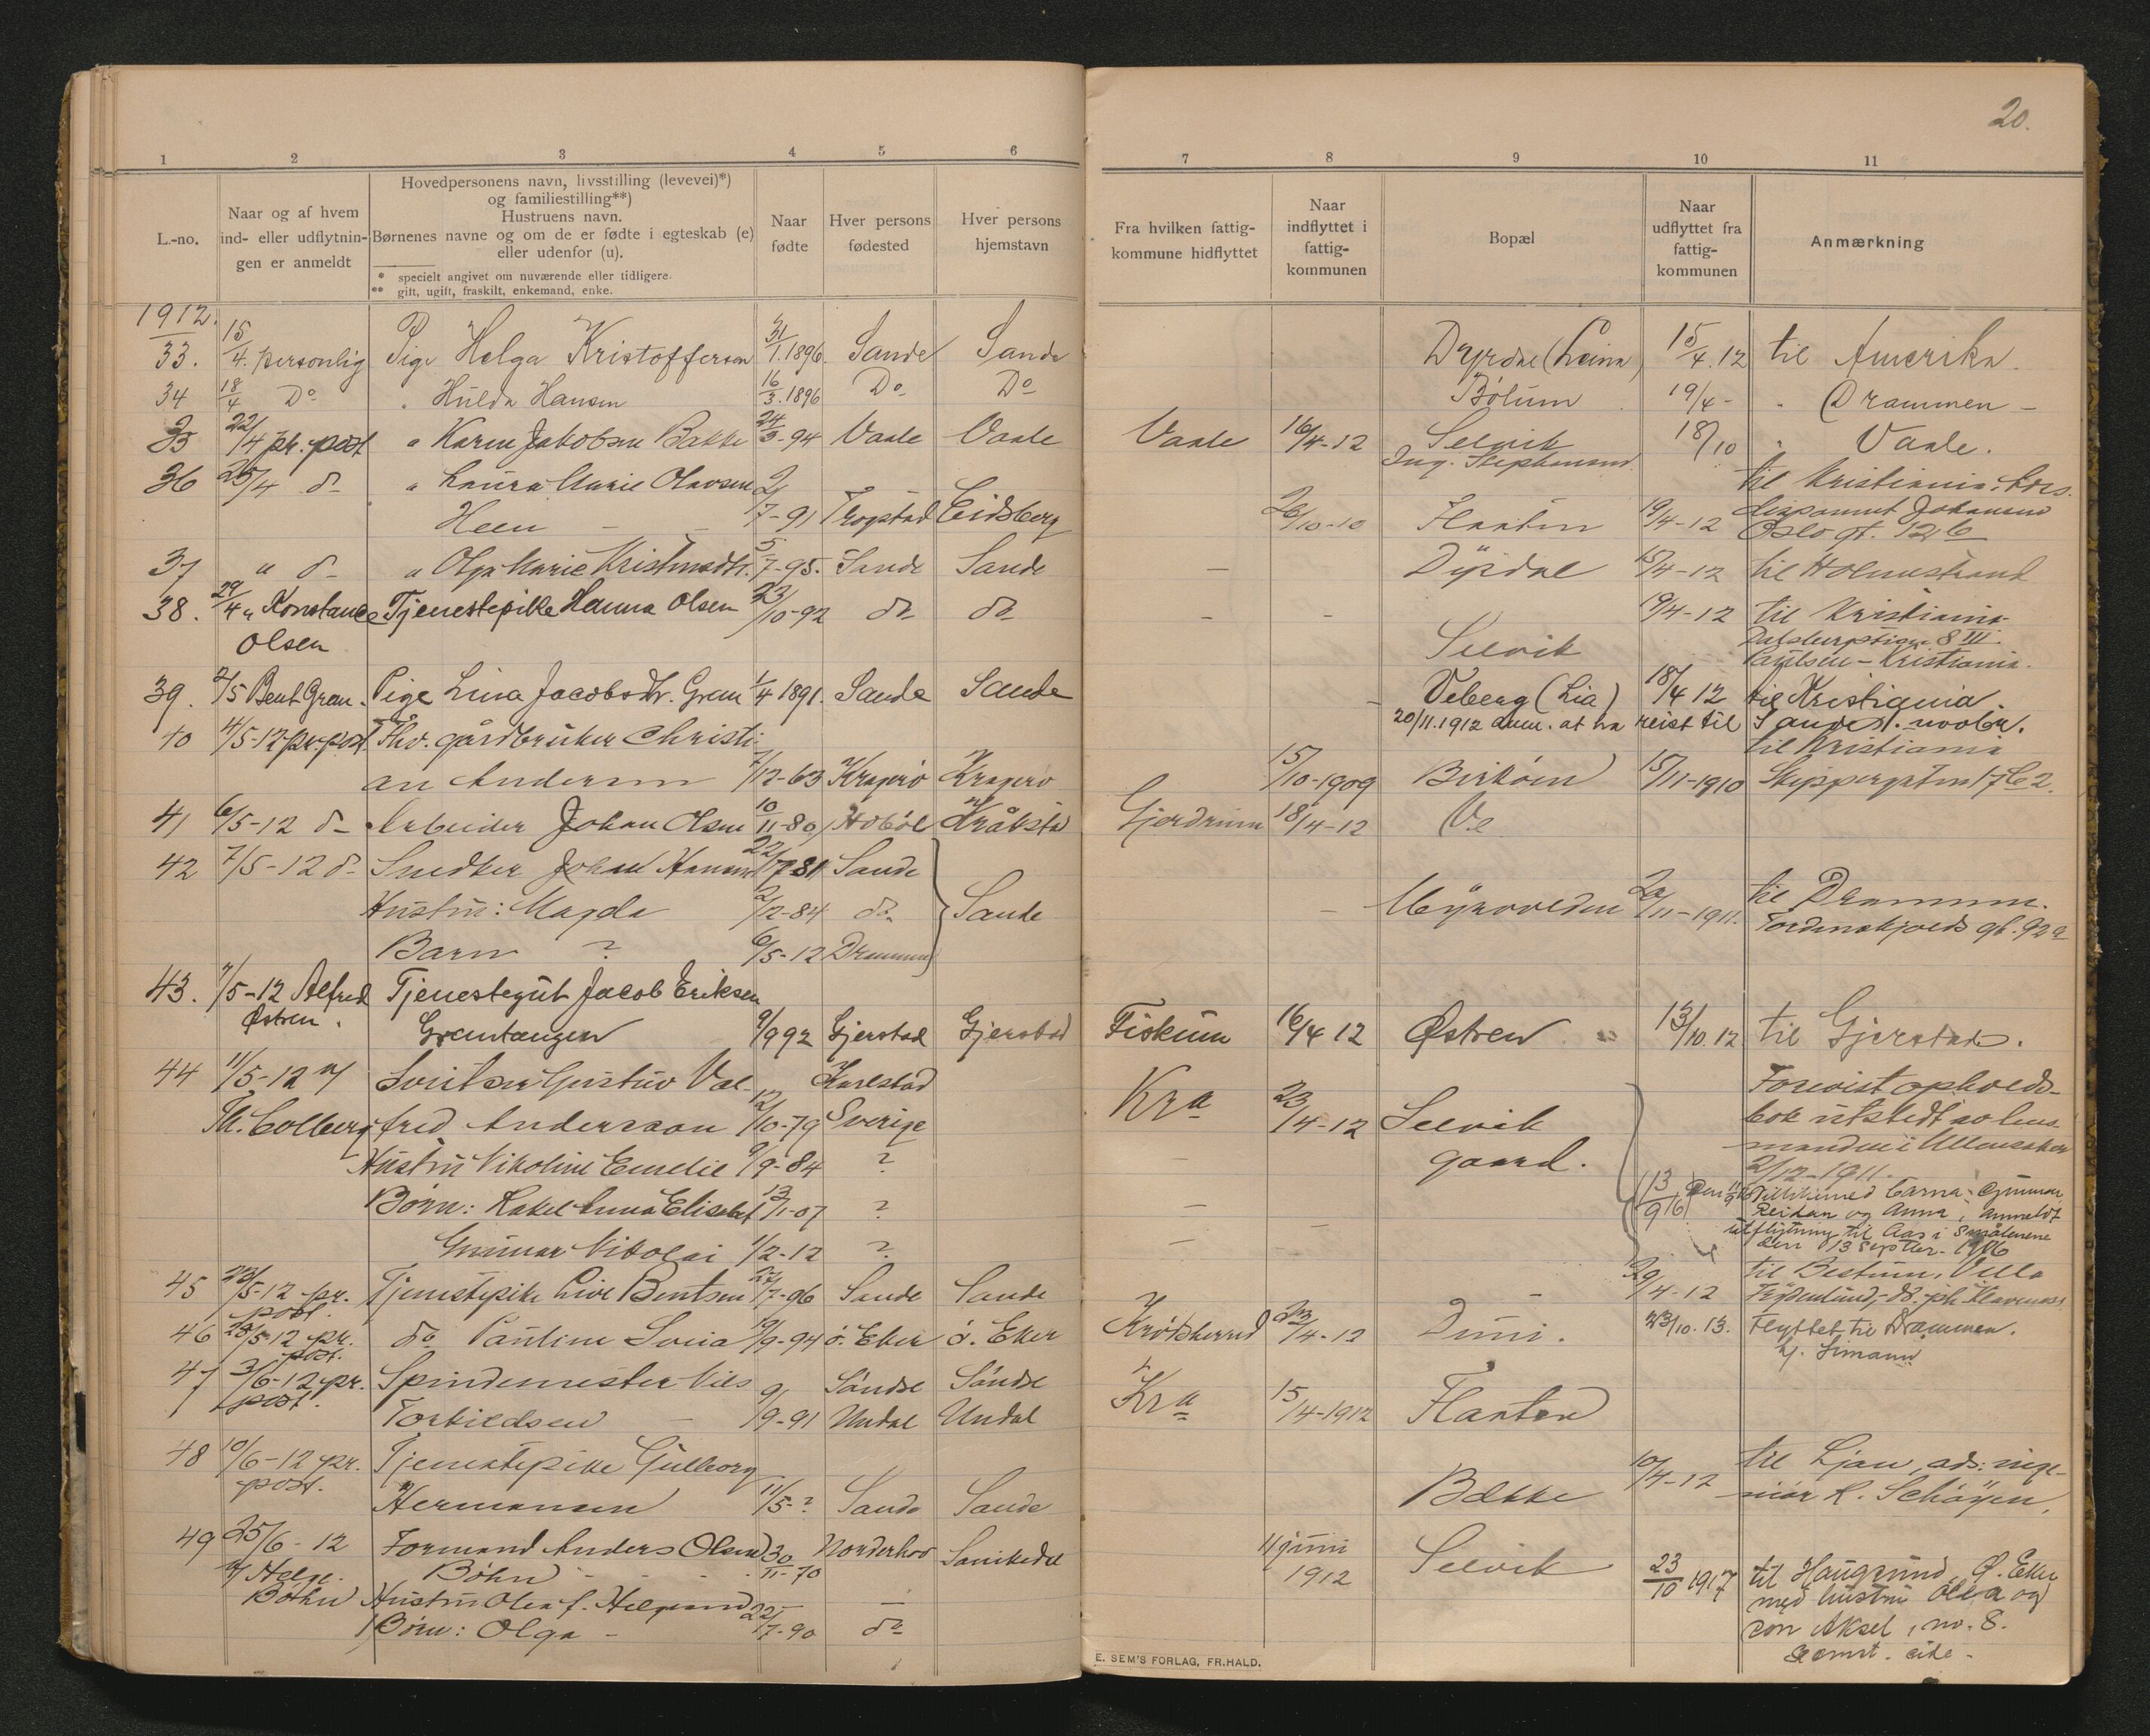 20.
1 2 3 4 5 6 7 8 9 10 11
L.-no.
Naar og af hvem
ind- eller udflytnin-
gen er anmeldt
Hovedpersonens navn, livsstilling (levevei)*)
og familiestilling**)
Hustruens navn.
Børnenes navne og om de er fødte i egteskab (e)
eller udenfor (u).
* specielt angivet om nuværende eller tidligere.
** gift, ugift, fraskilt, enkemand, enke.
Naar
fødte
Hver persons
fødested
Hver persons
hjemstavn
Fra hvilken fattig-
kommune hidflyttet
Naar
indflyttet i
fattig-
kommunen
Bopæl
Naar
udflyttet fra
fattig-
kommunen
Anmærkning
1912.
33. 15/4. personlig Pige Helga Kristoffersen 31/1.1896. Sande Sande Dyrdal 15/4.12 til Amerika.
34 18/4 Do " Hulda Hansen 16/3.1896 Do Do Bølum 19/4- " Drammen -
35 22/4 pr. post " Karen Jakobsen Bakke 24/3-94 Vaale Vaale Vaale 16/4-12 Selvik 18/10 " Vaale.
Ing. Stephansens
36 25/4 do " Laura Marie Olavsen 2/ til Kristiania, adr.
Heen - - 7-91 Trogstad Eidsberg 26/10-10 Flaaten 19/4-12 Johansen
Oslo gt. 12 b
37 " do " Olga Marie Kristensdtr. 5/7-95. Sande Sande - Dyrdal 15/4-12 til Holmestrand
38. 29/4 " Konstance Tjenestepike Hanna Olsen 23/10-92 do do - - 9/4-12 til Kristiania
Olsen Selvik 8 III.
Paulsen - Kristiania.
39. 2/5 Bent Gran. Pige Lina Jacobsdtr. Gran 1/4 1891. Sande Sande - Veberg (Lia) 18/4 12 til Kristiania.
20/11.1912 anm. at ha reist til Sandest. novbr.
40 4/5-12 pr. post Fhv. gårdbruker Christi- til Kristiania
an Andersen 7/12-63 Kragerö Kragerö 15/10-1909 Birköen 15/11-1910 Skippergaten 17 b 2.
41 6/5-12 do Arbeider Johan Olsen 10/11-80 Hoböl Kråkstad Gjerdrum 18/4-12 Ve
42 7/5-12 do Snedker Johan Hansen 22/7 81 Sande
Hustru: Magda 2/12-84 do Sande - 20/11-1911. til Drammen.
Barn ? 6/5-12 Drammen Tordenskjolds gt. 92 a
43. 7/5-12 Alfred Tjenestegut Jacob Eriksen
Østren. Grentangen 9/9 92 Gjerstad Gjerstad Fiskum 16/4 12 Østren 13/10.12 til Gjerstad.
44 11/5-12 v/ Gustav Val- Karlstad Kra 23/4-12 Selvik Forevist opholds-
Th. Colberg fred Andersson 12/10-79 Sverige gaard. bok utstedt av lens-
Hustru Nikoline Emelie 9/9-84 ? - manden i Ullensaker
2/12-1911.
Børn: Rakel Anna Elisabet 13/1-07 ? - 13/9 16 med barna: Gunnar,
Reidun og Anna, anmeldt
Gunnar Nikolai 1/2-12 ? - utflytning til Aas i Smålenene
den 13 Septbr. 1916
45 23/5-12 pr. post. Tjenestepike Live Bentsen 27/7-96 Sande Sande - 29/4-12 til Bestum, Villa
46 28/5-12 pr. post. do Pauline Lovia 19/9-94 ö. Eker ö. Eker Krödsherred 23/4-12 Duni. 23/10.13. Flyttet til Drammen.
47 3/6-12 pr. post. Spindemester Nils Söndre Söndre
Torkildsen - 9/9-91 Undal Undal Kra 15/4-1912 Flaaten
48 10/6-12 pr. post. Tjenestepike Gulborg til Ljan, ads: inge-
Hermansen 11/5-? Sande Sande Bakke 10/4-12 niör H. Schöyen.
49 25/6-12 Formand Anders Olsen 30/11-70 Norderhov Sanikedal 11 juni 1912 Selvik 23/10 1917 til Haugsund, Ø. Eker
v/ Helge Böhn - med hustru Olea og
Böhn Hustru Olea f. Helgesend - - søn Aksel, no. 8.
Børn: Olga - 22/7-90 do
E. SEM'S FORLAG, FR.HALD.